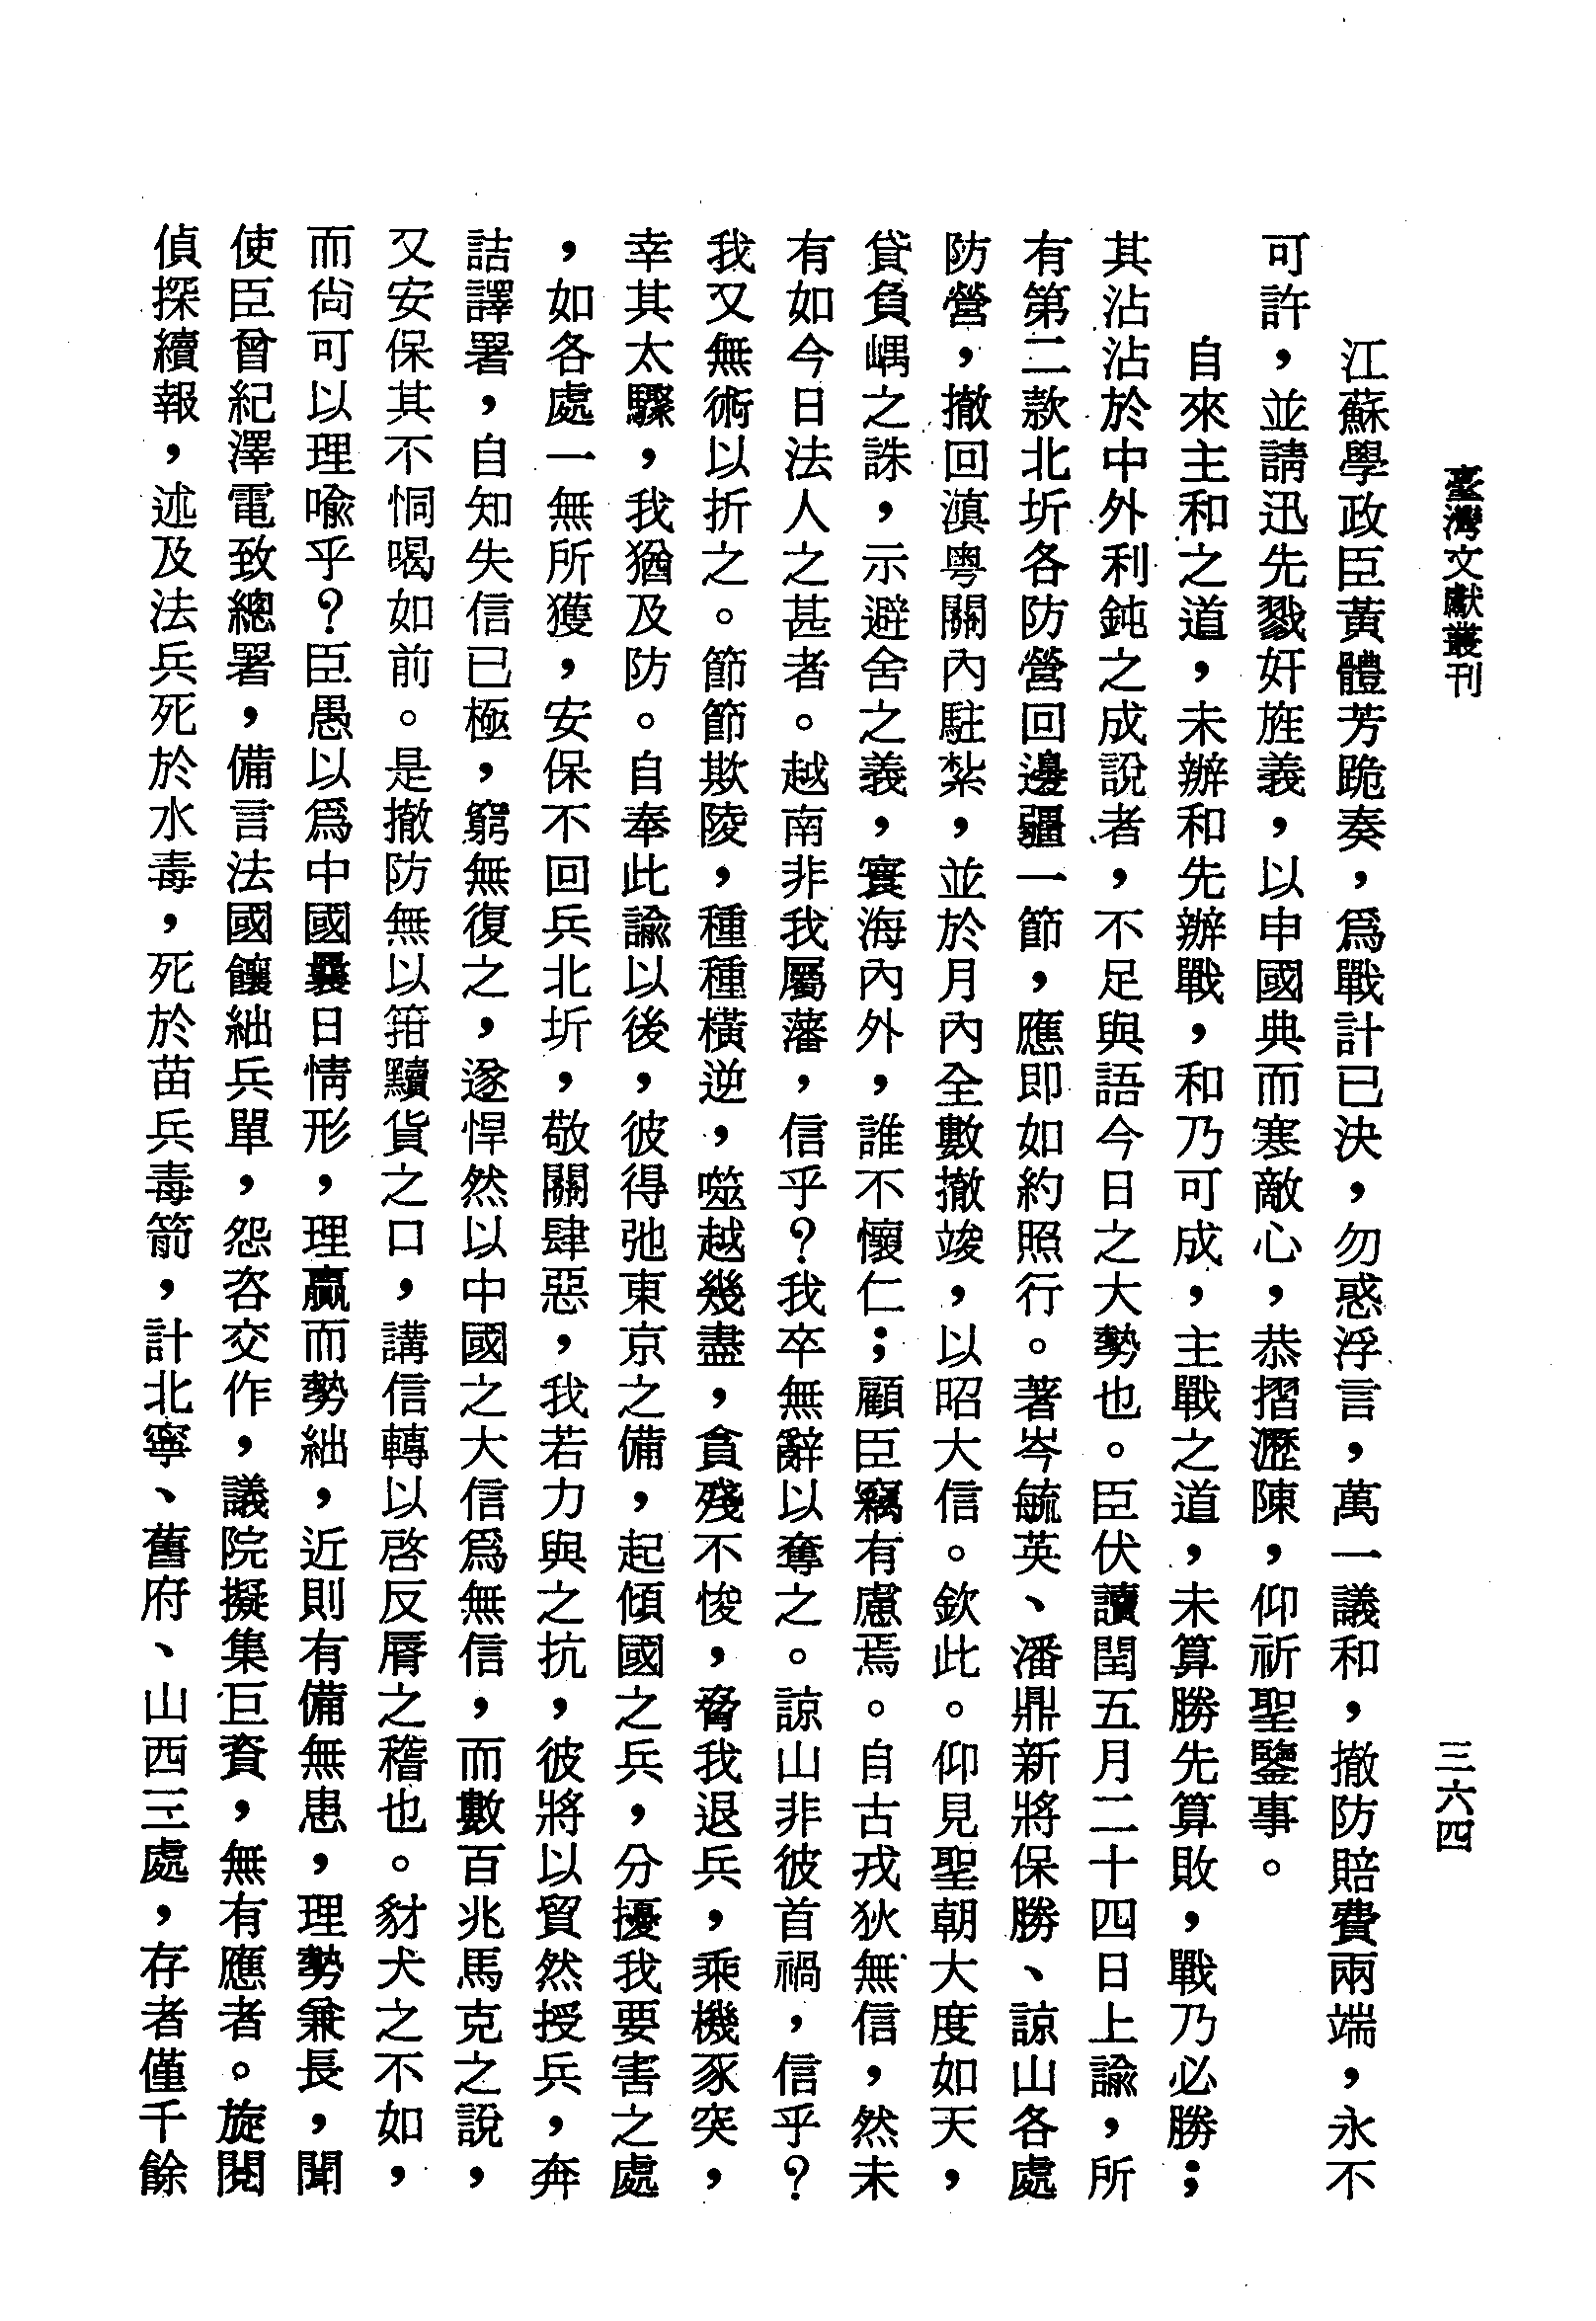 臺灣文獻叢刊
三六四
江蘇學政臣黃體芳跪奏，爲戰計已決，勿惑浮言，萬一議和，撤防賠費兩端，永不
可許，並請迅先戮奸旌義，以申國典而寒敵心，恭摺瀝陳，仰祈聖鑒事。
自來主和之道，未辦和先辦戰，和乃可成，主戰之道，未算勝先算敗，戰乃必勝；
其沾沾於中外利鈍之成說者，不足與語今日之大勢也。臣伏讀閏五月二十四日上諭，所
有第二款北圻各防營回邊疆一節，應即如約照行。著岑毓英、潘鼎新將保勝、諒山各處
防營，撤回滇粵關內駐紮，並於月內全數撤竣，以昭大信。欽此。仰見聖朝大度如天，
貸負嵎之誅，示避舍之義，寰海內外，誰不懷仁；顧臣竊有慮焉。自古戎狄無信，然未
有如今日法人之甚者。越南非我屬藩，信乎？我卒無辭以奪之。諒山非彼首禍，信乎？
我又無術以折之。節節欺陵，種種橫逆，噬越幾盡，貪殘不悛，脅我退兵，乘機豕突，
幸其太驟，我猶及防。自奉此諭以後，彼得弛東京之備，起傾國之兵，分擾我要害之處
，如各處一無所獲，安保不回兵北圻，敬關肆惡，我若力與之抗，彼將以貿然授兵，奔
詰譯署，自知失信已極，窮無復之，遂悍然以中國之大信爲無信，而數百兆馬克之說，
又安保其不恫喝如前。是撤防無以箝黷貨之口，講信轉以啓反脣之稽也。豺犬之不如，
而尙可以理喩乎？臣愚以爲中國曩日情形，理贏而勢絀，近則有備無患，理勢兼長，聞
使臣曾紀澤電致總署，備言法國饟絀兵單，怨咨交作，議院擬集巨資，無有應者。旋閱
偵探續報，述及法兵死於水毒，死於苗兵毒箭，計北寧、舊府、山西三處，存者僅千餘